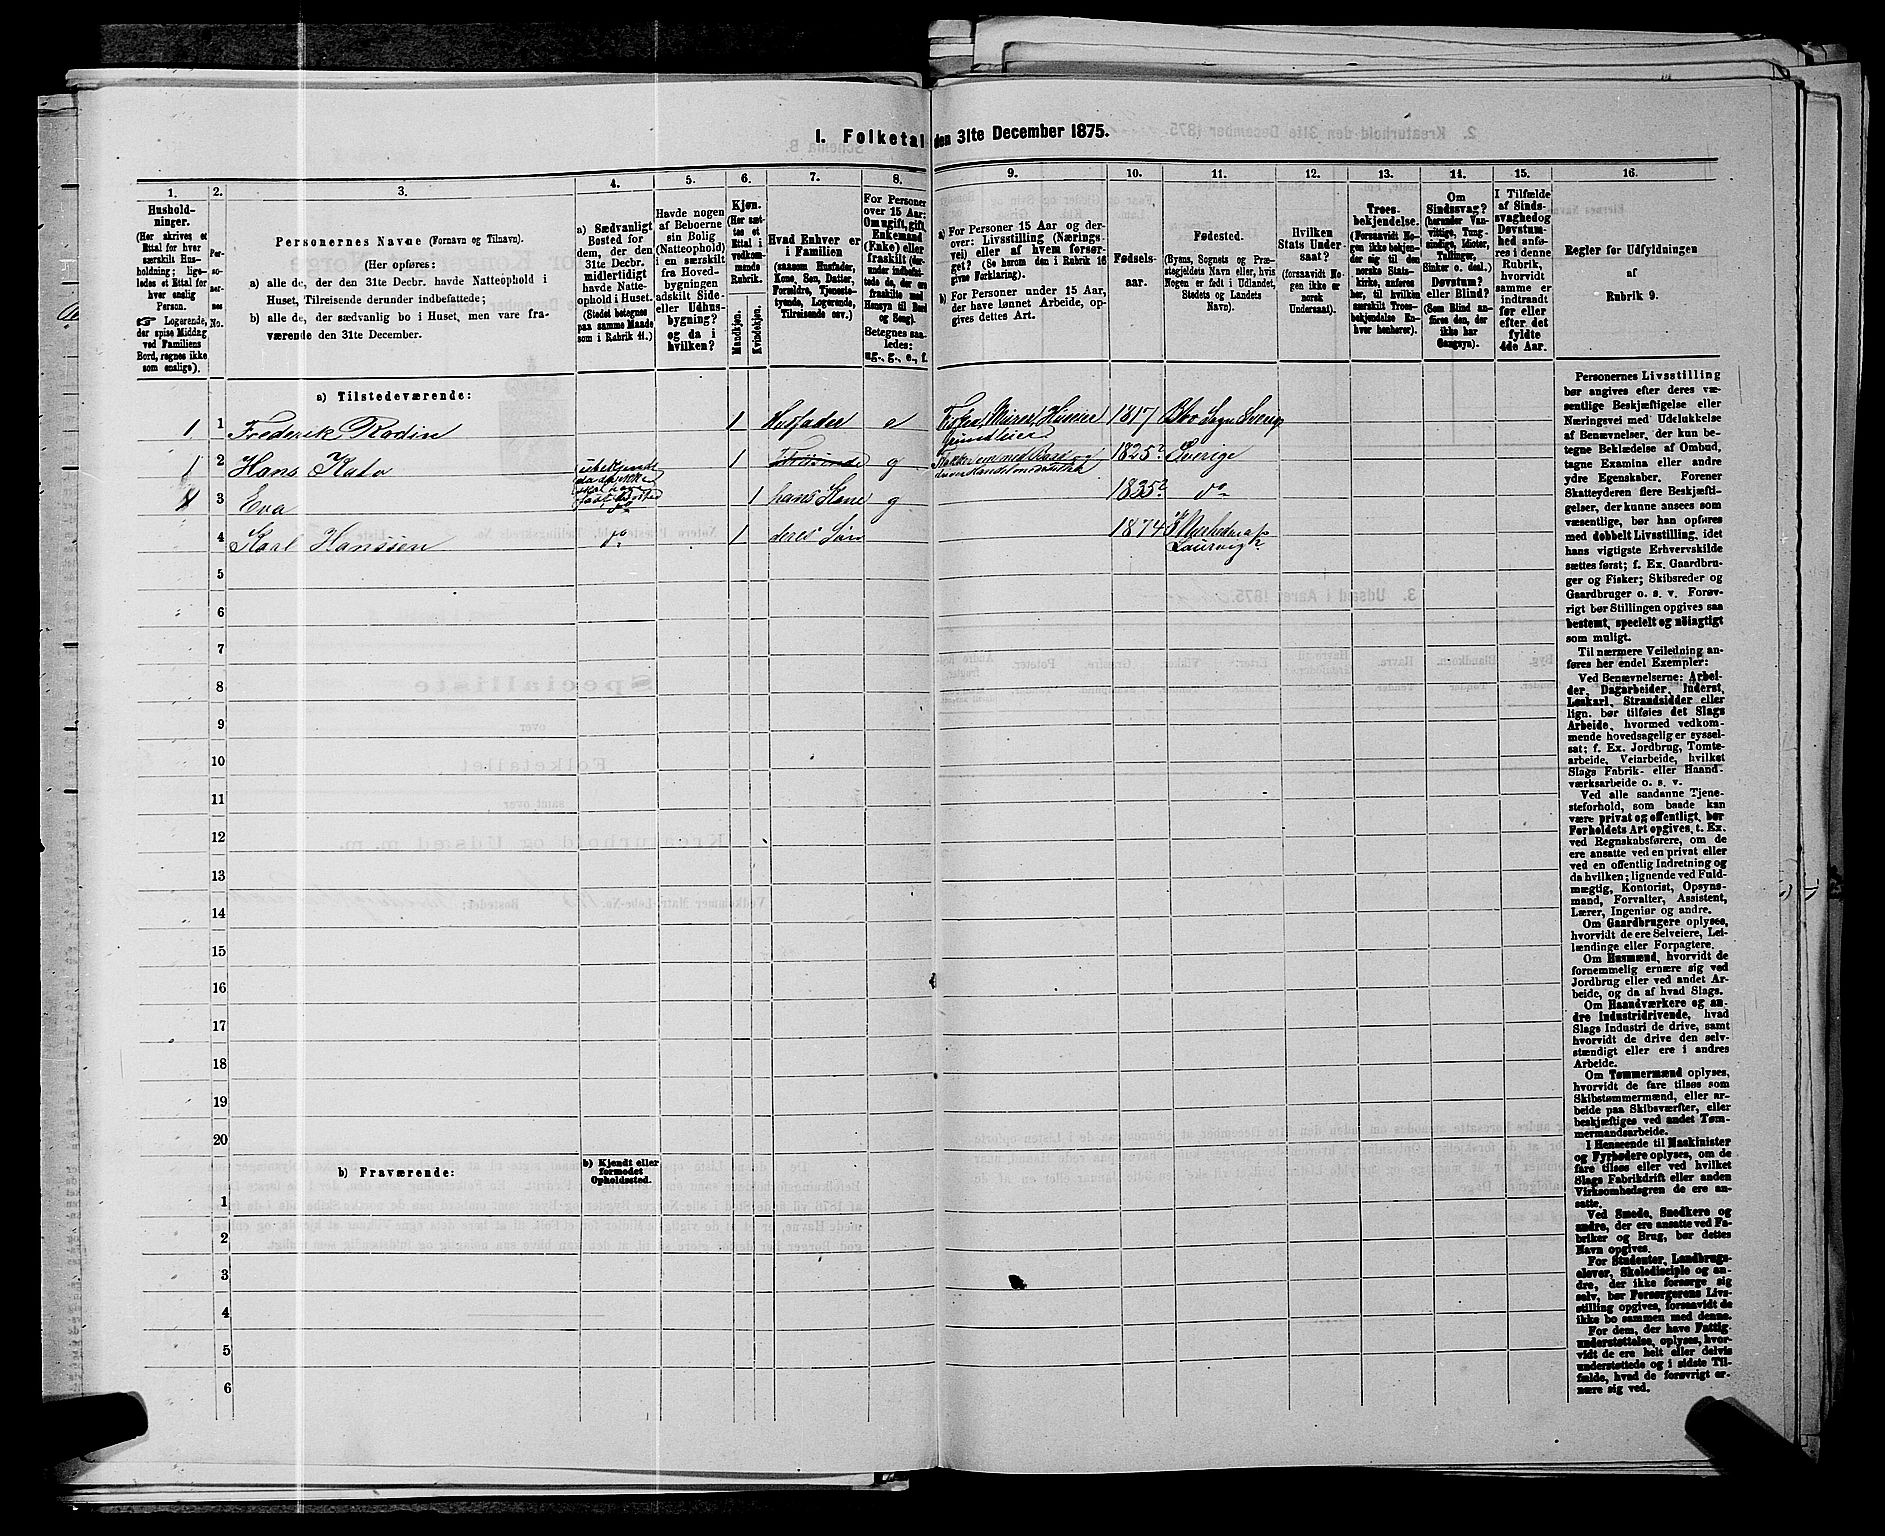 I. Folketal den 31te December 1875.
1. 2. 3. 4. 5. 6. 7. 8. 9. 10. 11. 12. 13. 14. 15. 16.
Hushold-
ninger.
(Her skrives et
Ettal for hver
særskilt Hus-
holdning; lige-
ledes et Ettal for
hver enslig
Person.
☞ Logerende,
der spise Middag
ved Familiens
Bord, regnes ikke
som enslige).
Per-
so-
ner-
nes
No.
Personernes Navne (Fornavn og Tilnavn).
(Her opføres:
a) alle de, der den 31te Decbr. havde Natteophold i
Huset, Tilreisende derunder indbefattede;
b) alle de, der sædvanlig bo i Huset, men vare fra-
værende den 31te December.
a) Sædvanligt
Bosted for
dem, der den
31te Decbr.
midlertidigt
havde Natte-
ophold i Huset.
(Stedet betegnes
paa samme Maade
som i Rubrik 11.)
Havde nogen
af Beboerne
sin Bolig
(Natteophold)
i en særskilt
fra Hoved-
bygningen
adskilt Side-
eller Udhus-
bygning?
og da i
hvilken?
Kjøn.
(Her sæt-
tes et
Ettal i
vedkom-
mende
Rubrik.
Mandkjøn.
Kvindekjøn.
Hvad Enhver er
i Familien
(saasom Husfader,
Kone, Søn, Datter,
Forældre, Tjeneste-
tyende, Logerende,
Tilreisende osv.)
For Personer
over 15 Aar:
Om ugift, gift,
Enkemand
(Enke) eller
fraskilt (der-
under indbefat-
tede de, der ere
fraskilte med
Hensyn til Bord
og Seng).
Betegnes saa-
ledes:
ug., g., e., f.
a) For Personer 15 Aar og der-
over: Livsstilling (Nærings-
vei) eller af hvem forsør-
get? (Se herom den i Rubrik 16
givne Forklaring).
b) For Personer under 15 Aar,
der have lønnet Arbeide, op-
gives dettes Art.
Fødsels-
aar.
Fødested.
(Byens, Sognets og Præ-
stegjeldets Navn eller, hvis
Nogen er født i Udlandet,
Stedets og Landets
Navn).
Hvilken
Stats Under-
saat?
(forsaavidt No-
gen ikke er
norsk
Undersaat).
Troes-
bekjendelse.
(Forsaavidt No-
gen ikke bekjen-
der sig til den
norske Stats-
kirke, anføres
her, til hvilken
særskilt Troes-
bekjendelse En-
hver henhører).
Om
Sindssvag?
(herunder Van-
vittige, Tung-
sindige, Idioter,
Tullinger,
Sinker o. desl.)
Døvstum?
eller Blind?
(Som Blind an-
føres den, der
ikke har
Gangsyn).
I Tilfælde
af Sinds-
svaghed og
Døvstum-
hed anfø-
res i denne
Rubrik,
hvorvidt
samme er
indtraadt
før eller
efter det
fyldte
4de Aar.
Regler for Udfyldningen
af
Rubrik 9.
a) Tilstedeværende:
1 1 Frederik Rodin 1 Husfader e 1817
1 2 Hans Kato 1 g 1825? Sverige
3 Eva do 1 hans Kone g 1835? do
4 Karl Hanssen do 1 deres Søn 1874 Laurvig
5
6
7
8
9
10
11
12
13
14
15
16
17
18
19
20
b) Fraværende: b) Kjendt eller
formodet
Opholdssted.
1
2
3
4
5
6
Personernes Livsstilling
bør angives efter deres væ-
sentlige Beskjæftigelse eller
Næringsvei med Udelukkelse
af Benævnelser, der kun be-
tegne Beklædelse af Ombud,
tagne Examina eller andre
ydre Egenskaber. Forener
Skatteyderen flere Beskjæfti-
gelser, der kunne ansees som
væsentlige, bør han opføres
med dobbelt Livsstilling, idet
hans vigtigste Erhvervskilde
sættes først; f. Ex. Gaardbru-
ger og Fisker; Skibsreder og
Gaardbruger o. s. v. Forøv-
rigt bør Stillingen opgives saa
bestemt, specielt og nøiagtigt
som muligt.
Til nærmere Veiledning an-
føres her endel Exempler:
Ved Benævnelserne: Arbei-
der, Dagarbeider, Inderst,
Løskarl, Strandsidder eller
lign. bør tilføies det Slags
Arbeide, hvormed vedkom-
mende hovedsagelig er syssel-
sat; f. Ex. Jordbrug, Tomte-
arbeide, Veiarbeide, hvilket
Slags Fabrik- eller Haand-
værksarbeide o. s. v.
Ved alle saadanne Tjene-
steforhold, som baade kan
være privat og offentligt, bør
Forholdets Art opgives, t. Ex.
ved Regnskabsførere, om de
ere ansatte ved en privat eller
ved en offentlig Indretning og
da hvilken; lignende ved Fuld-
mægtig, Kontorist, Opsyns-
mand, Forvalter, Assistent,
Lærer, Ingeniør og andre.
Om Gaardbrugere oplyses,
hvorvidt de ere Selveiere, Lei-
lændinge eller Forpagtere.
Om Husmænd, hvorvidt de
fornemmelig ernære sig ved
Jordbrug eller ved andet Ar-
beide, og da af hvad Slags.
Om Haandværkere og an-
dre Industridrivende, hvad
Slags Industri de drive, samt
hvorvidt de drive den selv-
stændigt eller ere i andres
Arbeide.
Om Tømmermænd oplyses,
hvorvidt de fare tilsøs som
Skibstømmermænd, eller ar-
beide paa Skibsværfter, eller
beskjæftiges ved andet Tøm-
mermandsarbeide.
I Henseende til Maskinister
og Fyrbødere oplyses, om de
fare tilsøs eller ved hvilket
Slags Fabrikdrift eller anden
Virksomhedsgren de ere an-
satte.
Ved Smede, Snedkere og
andre, der ere ansatte ved Fa-
briker og Brug, bør dettes
Navn opgives.
For Studenter, Landbrugs-
elever, Skoledisciple og an-
dre, der ikke forsørge sig
selv, bør Forsørgerens Livs-
stilling opgives, forsaavidt de
ikke bo sammen med denne.
For dem, der have Fattig-
understøttelse, oplyses, hvor-
vidt de ere helt eller delvis
understøttede og i sidste Til-
fælde, hvad de forøvrigt er-
nære sig ved.